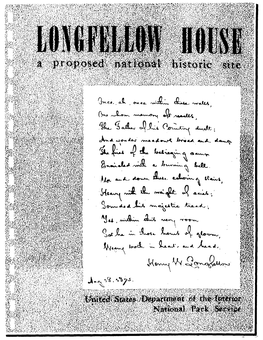 LONGFELLOW HOUSE
a proposed national historic site
Once, ah, once within these walls,
One whom memory oft recalls,
The Father of his Country dwelt;
And yonder meadows broad and damp
The fires of the besieging camp
Encircled with a burning belt.
Up and down these echoing stairs,
Heavy with the weight of cares,
Sounded his majestic tread;
Yes, within this very room
Sat he in those hours of gloom,
Weary both in heart and head.
Henry W. Longfellow
United States Department of the Interior
National Park Service